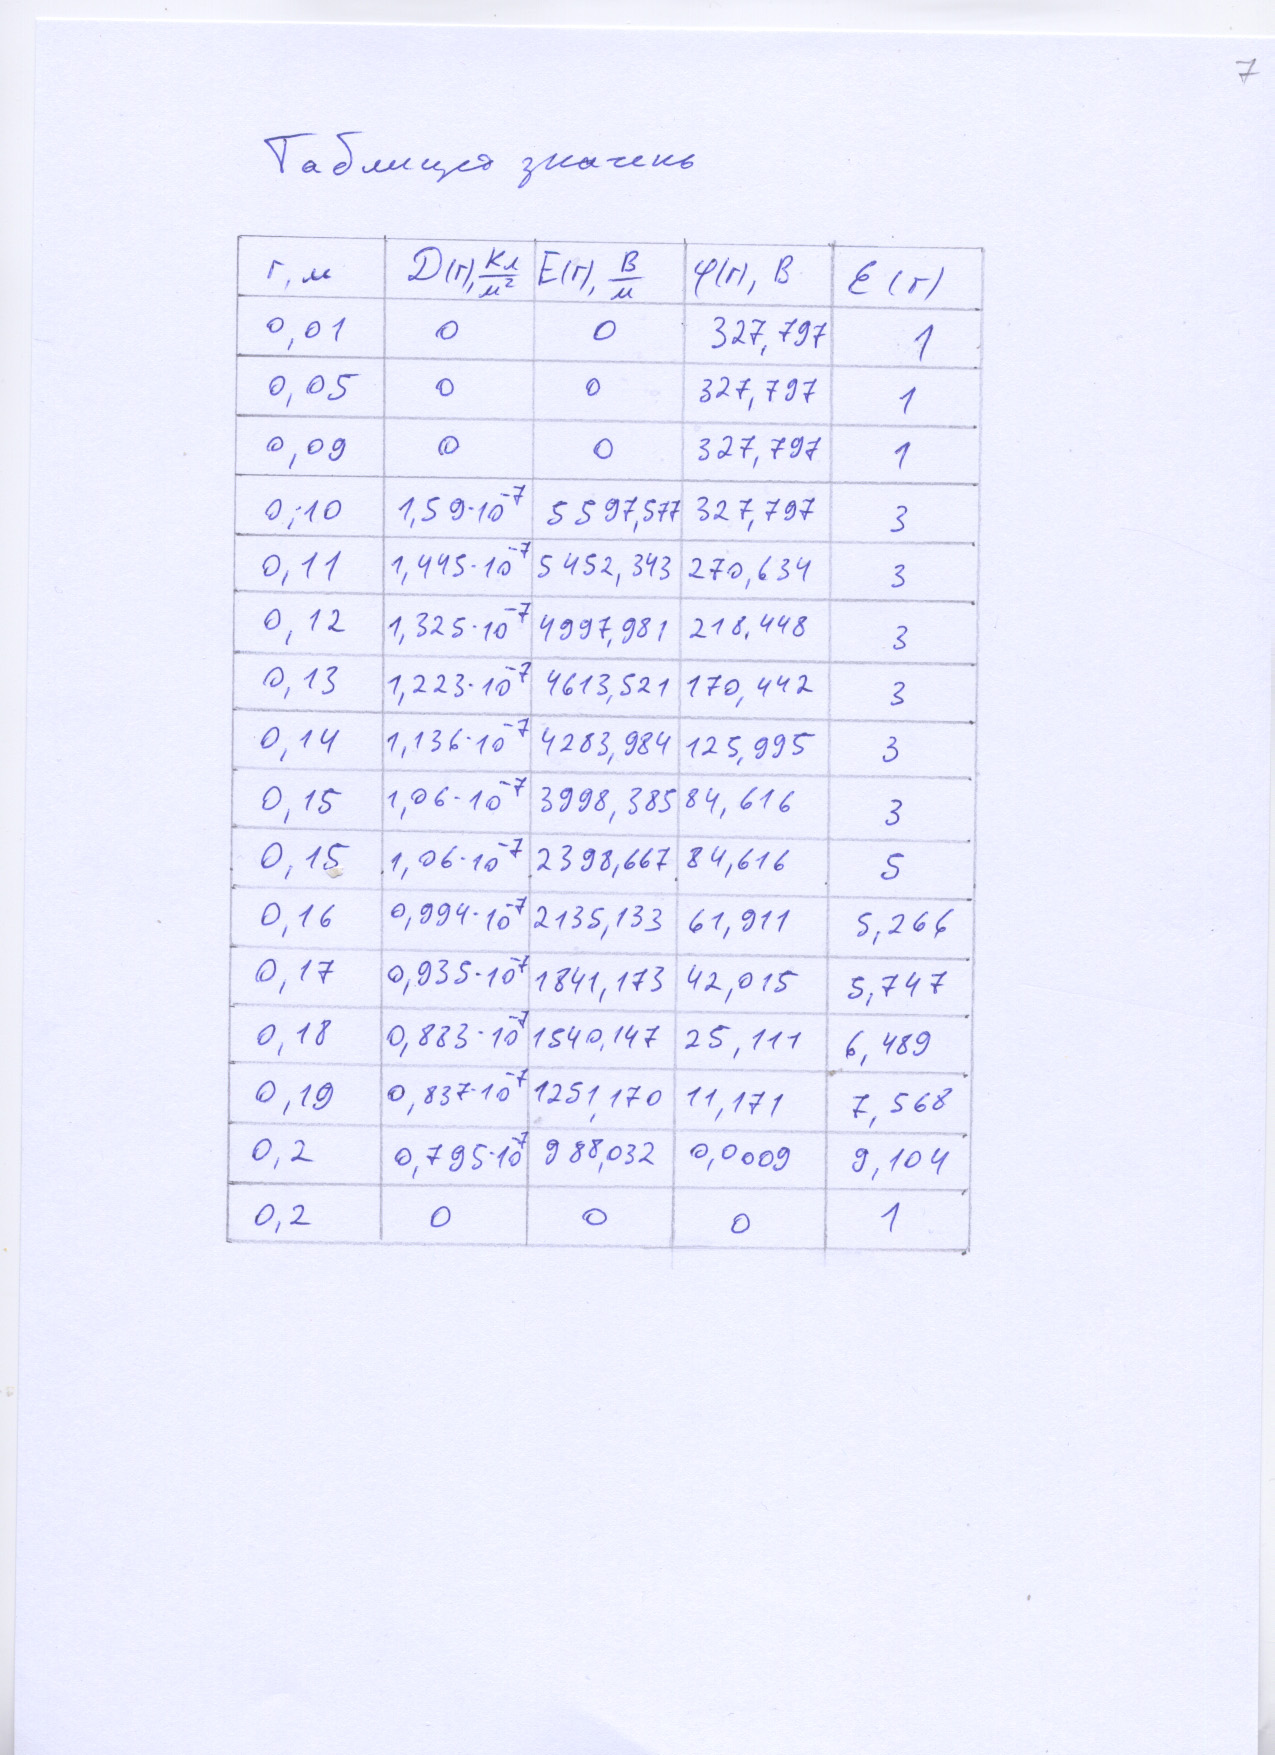 7
Таблиця значень
r, м D(r), Кл/м² E(r), В/м φ(r), В Ɛ(r)
0,01 0 0 327,797 1
0,05 0 0 327,797 1
0,09 0 0 327,797 1
0,10 1,59·10⁻⁷ 5597,577 327,797 3
0,11 1,445·10⁻⁷ 5452,343 270,634 3
0,12 1,325·10⁻⁷ 4997,981 218,448 3
0,13 1,223·10⁻⁷ 4613,521 170,442 3
0,14 1,136·10⁻⁷ 4283,984 125,995 3
0,15 1,06·10⁻⁷ 3998,385 84,616 3
0,15 1,06·10⁻⁷ 2398,667 84,616 5
0,16 0,994·10⁻⁷ 2135,133 61,911 5,266
0,17 0,935·10⁻⁷ 1841,173 42,015 5,747
0,18 0,883·10⁻⁷ 1540,147 25,111 6,489
0,19 0,837·10⁻⁷ 1251,170 11,171 7,568
0,2 0,795·10⁻⁷ 988,032 0,0009 9,104
0,2 0 0 0 1